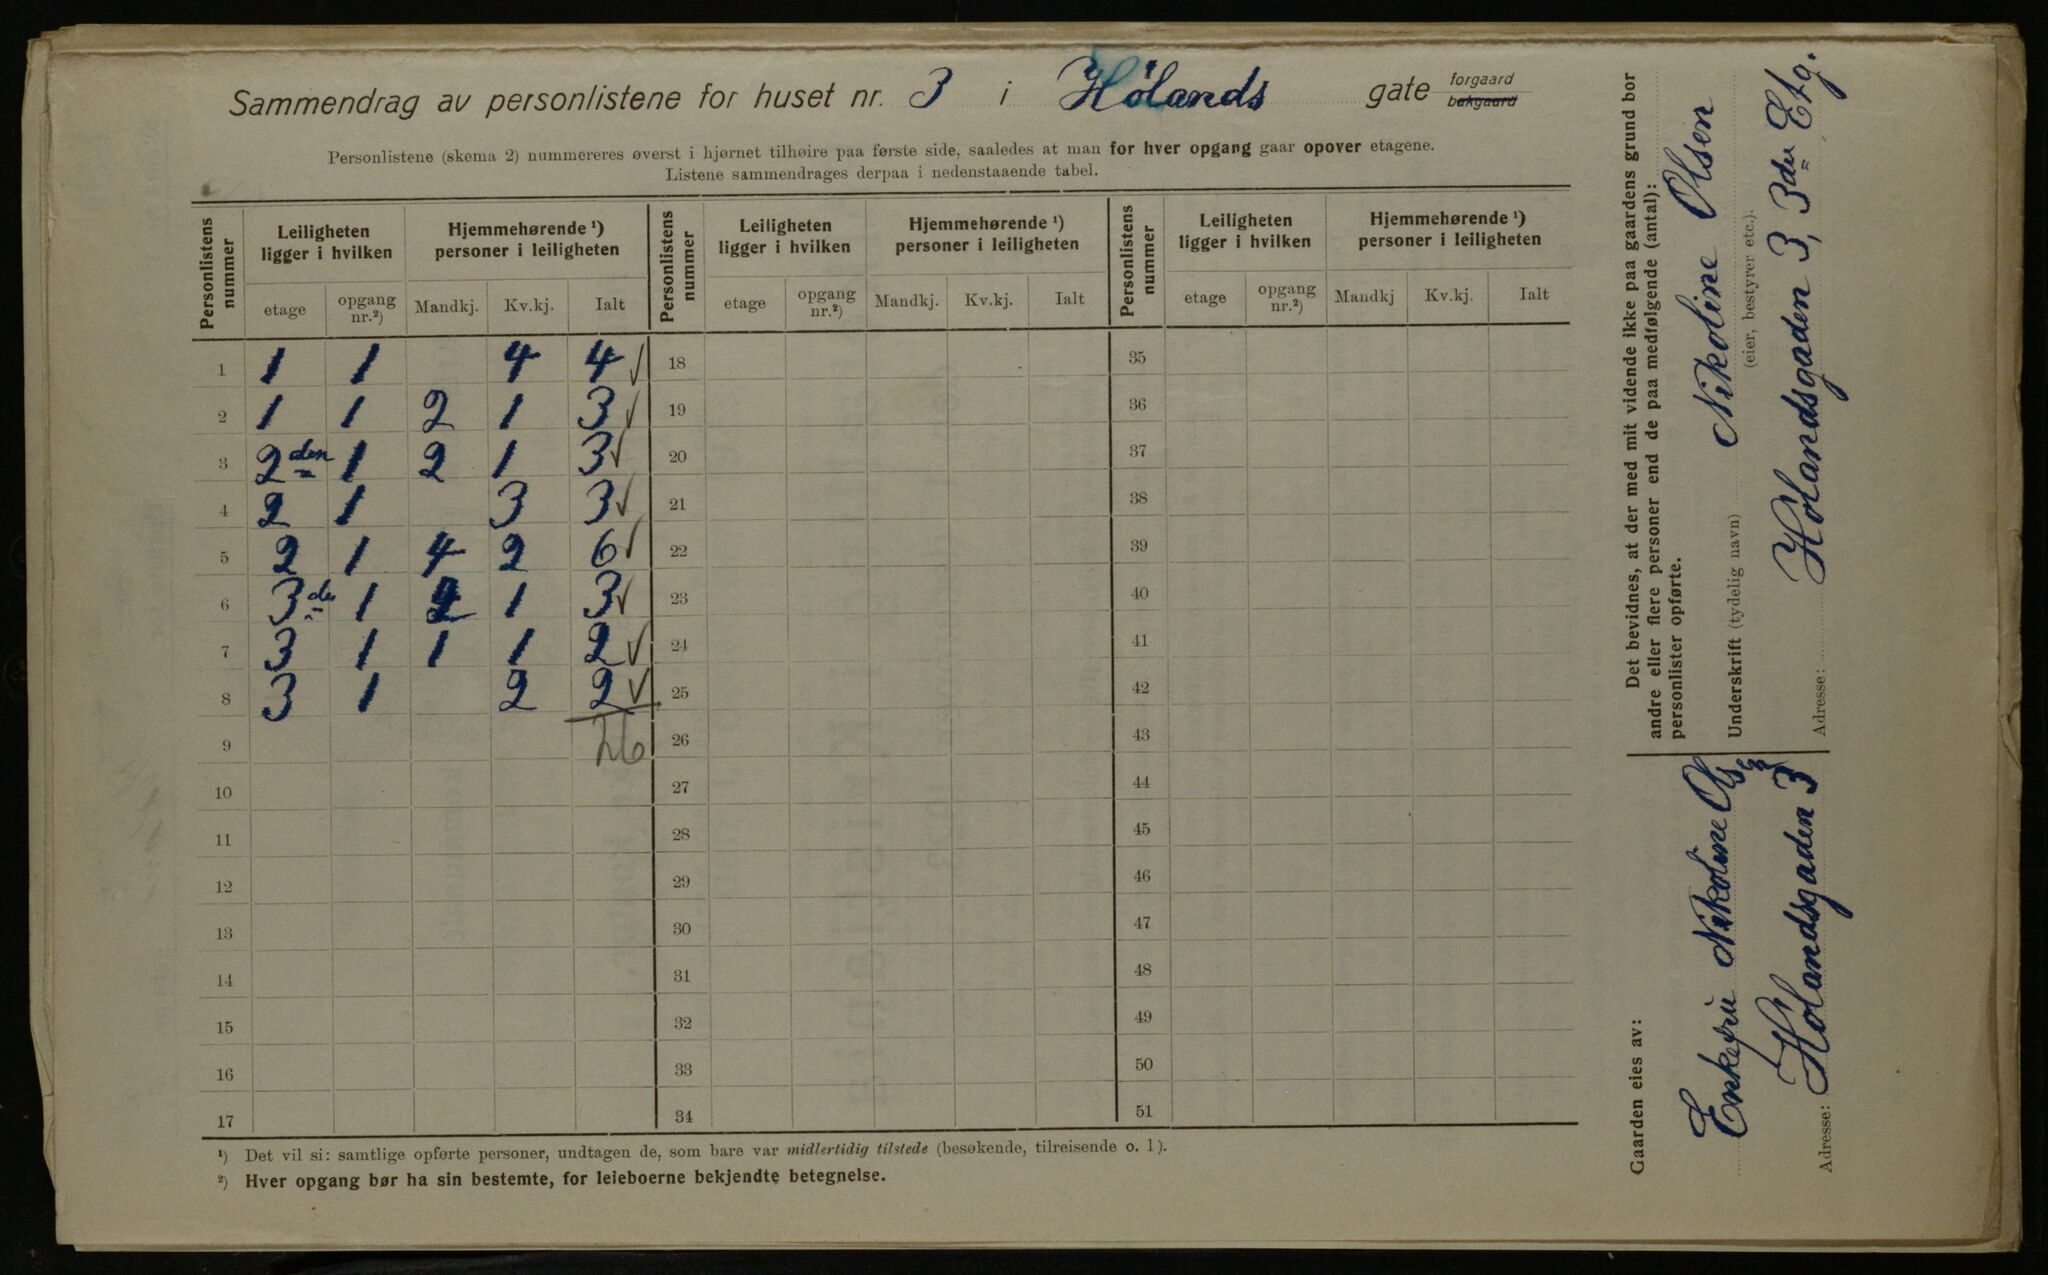 Sammendrag av personlistene for huset nr. 3 i Hølands gate forgaard bakgaard
Personlistene (skema 2) nummereres øverst i hjørnet tilhøire paa første side, saaledes at man for hver opgang gaar opover etagene.
Listene sammendrages derpaa i nedenstaaende tabel.
Personlistens nummer | Leiligheten ligger i hvilken | Hjemmehørende ¹) personer i leiligheten | Personlistens nummer | Leiligheten ligger i hvilken | Hjemmehørende ¹) personer i leiligheten | Personlistens nummer | Leiligheten ligger i hvilken | Hjemmehørende ¹) personer i leiligheten
etage | opgang nr.²) | Mandkj. | Kv.kj. | Ialt | etage | opgang nr.²) | Mandkj. | Kv.kj. | Ialt | etage | opgang nr.²) | Mandkj | Kv.kj. | Ialt
1 | 1 | 1 | | 4 | 4 ✓ | 18 | 35
2 | 1 | 1 | 2 | 1 | 3 ✓ | 19 | 36
3 | 2den | 1 | 2 | 1 | 3 ✓ | 20 | 37
4 | 2 | 1 | | 3 | 3 ✓ | 21 | 38
5 | 2 | 1 | 4 | 2 | 6 ✓ | 22 | 39
6 | 3de | 1 | 2 | 1 | 3 ✓ | 23 | 40
7 | 3 | 1 | 1 | 1 | 2 ✓ | 24 | 41
8 | 3 | 1 | | 2 | 2 ✓ | 25 | 42
9 | | | | | 26 | 26 | 43
10 | 27 | 44
11 | 28 | 45
12 | 29 | 46
13 | 30 | 47
14 | 31 | 48
15 | 32 | 49
16 | 33 | 50
17 | 34 | 51
¹) Det vil si: samtlige opførte personer, undtagen de, som bare var midlertidig tilstede (besøkende, tilreisende o. l).
²) Hver opgang bør ha sin bestemte, for leieboerne bekjendte betegnelse.
Det bevidnes, at der med mit vidende ikke paa gaardens grund bor
andre eller flere personer end de paa medfølgende (antal):
personlister opførte.
Underskrift (tydelig navn) Nikoline Olsen
(eier, bestyrer etc.).
Adresse: Hølandsgaden 3, 3die Etg.
Gaarden eies av:
Enkefru Nikoline Olsen
Adresse: Hølandsgaden 3